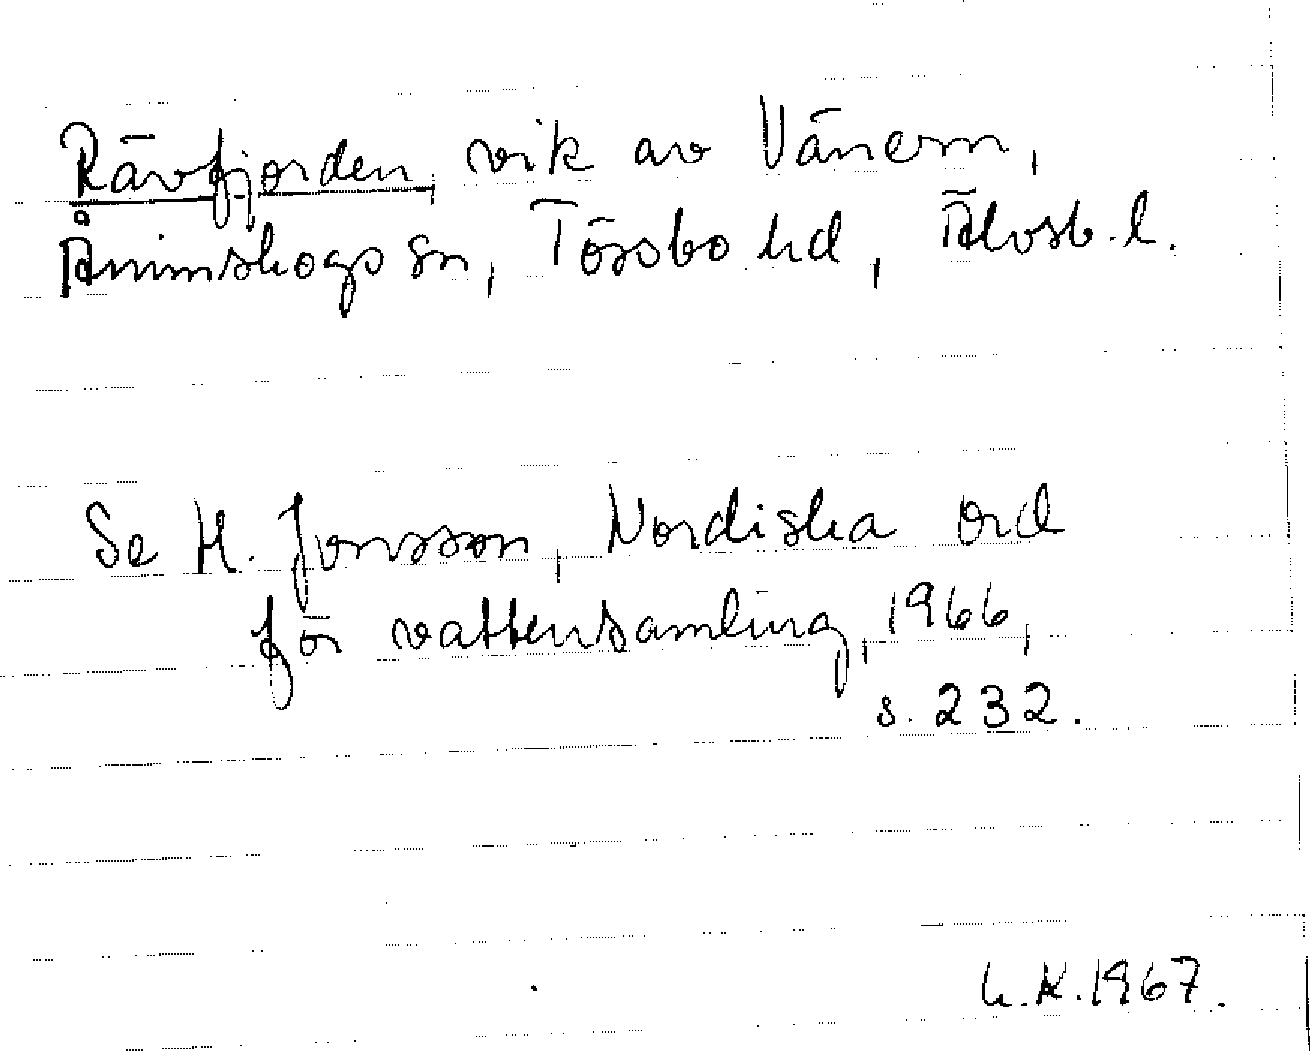 Rävfjorden, vik av Vänern,
Ånimskogs sn, Tössbo hd, Älvsb. l.
Se H. Jonsson, Nordiska ord
för vattensamling, 1966,
s. 232.
1967.